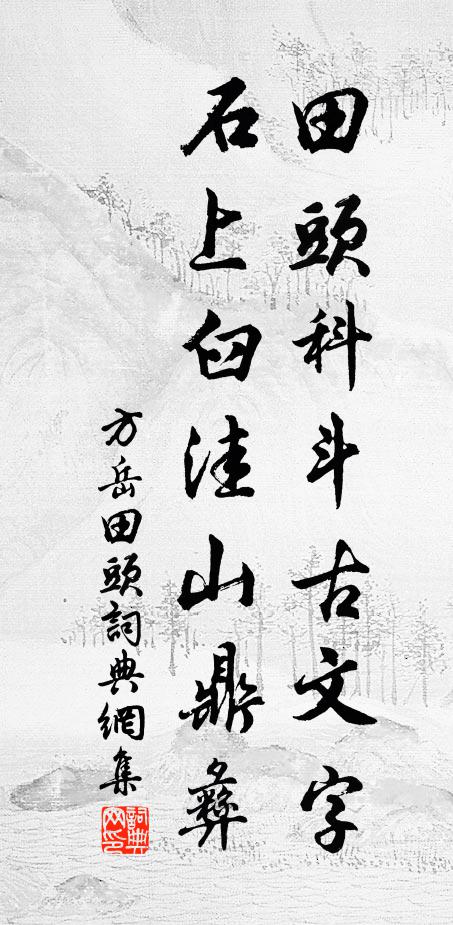 田頭科斗古文字
石上臼洼山鼎彝
方岳田頭詞典網集
詞典網印